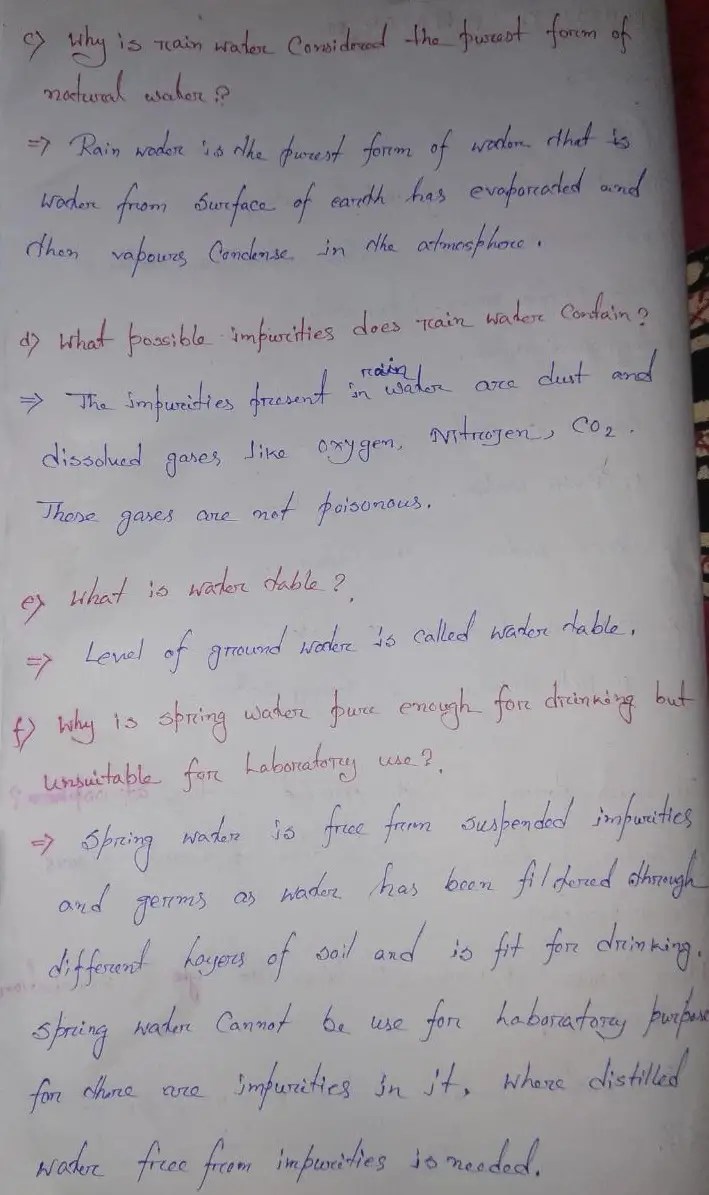 c) Why is rain water Considered the purest form of
natural water?
=> Rain water is the purest form of water that is
water from surface of earth has evaporated and
then vapours Condense in the atmosphere.
d) What possible impurities does rain water Contain?
=> The impurities present in rain water are dust and
dissolved gases like oxygen, Nitrogen, CO2.
These gases are not poisonous.
e) What is water table?
=> Level of ground water is called water table.
f) Why is spring water pure enough for drinking but
unsuitable for Laboratory use?
=> Spring water is free from suspended impurities
and germs as water has been filtered through
different Layers of soil and is fit for drinking.
Spring water Cannot be use for Laboratory purpose
for there are impurities in it, where distilled
water free from impurities is needed.